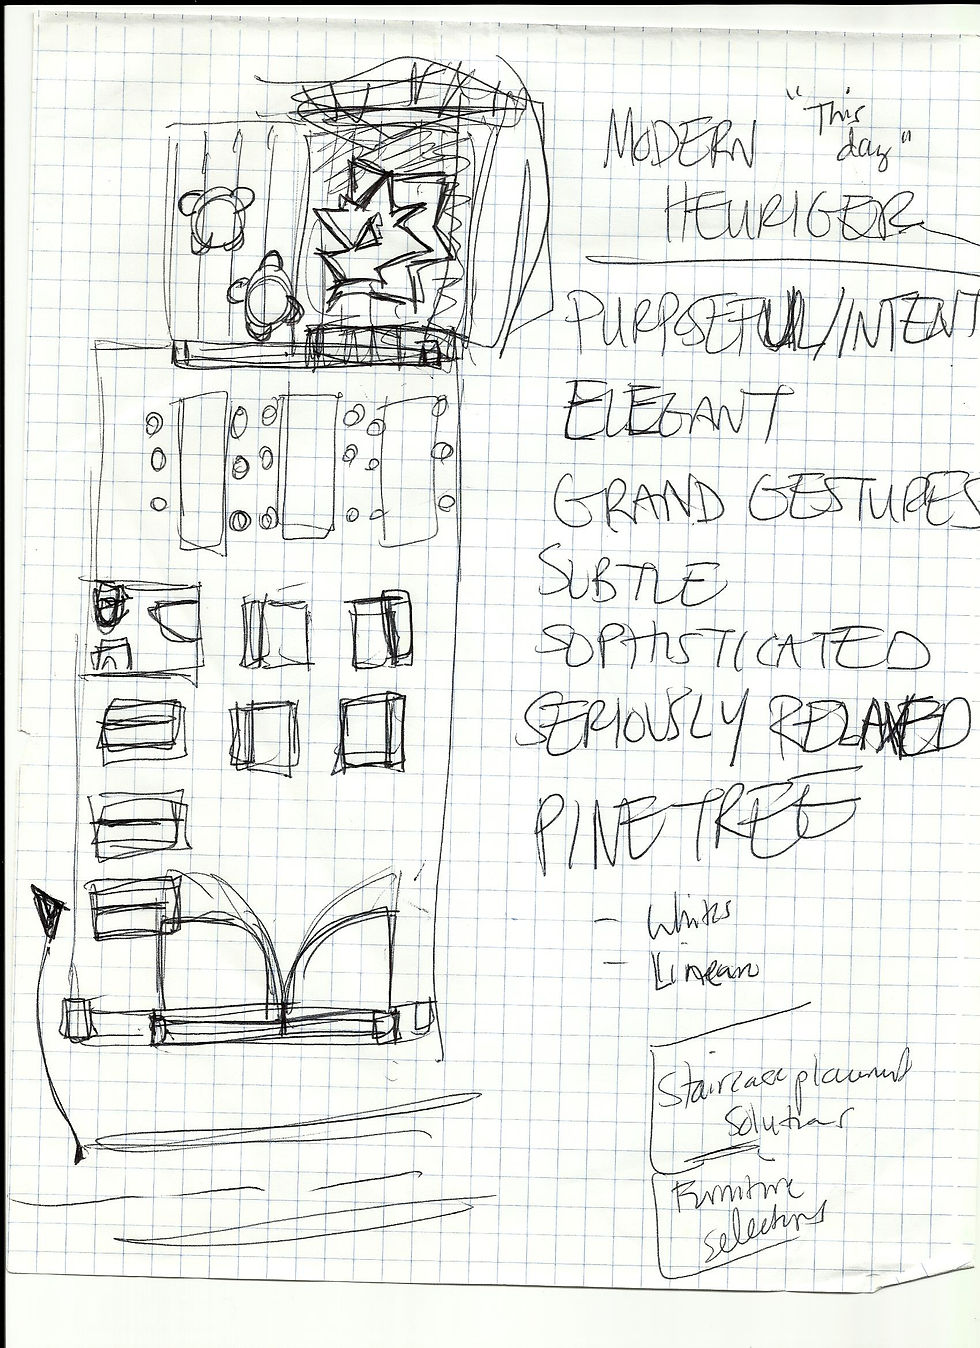 MODERN "This
day"
HEURIGER
PURPOSEFUL/INTENT
ELEGANT
GRAND GESTURES
SUBTLE
SOPHISTICATED
SERIOUSLY RELAXED
PINE TREE
- Whites
- Linear
Staircase placement
solutions
Furniture
selections